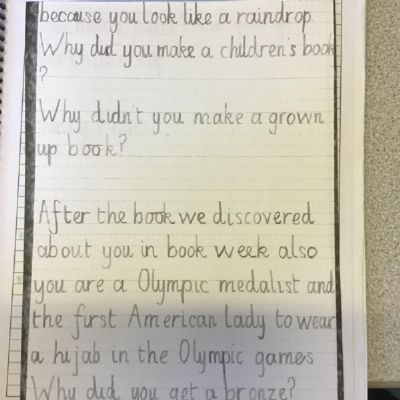 because you look like a raindrop
Why did you make a children's book
?
Why didn't you make a grown
up book?
After the book we discovered
about you in book week also
you are a Olympic medalist and
the first American lady to wear
a hijab in the Olympic games
Why did you get a bronze?